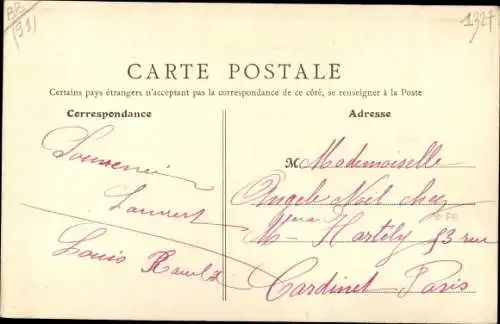 1327
CARTE POSTALE
Certains pays étrangers n'acceptant pas la correspondance de ce côté, se renseigner à la Poste
Correspondance
Adresse
Souvenir
Laurent
Louis
M Mademoiselle
Angele Noël chez
Hartély 53 rue
Cardinet Paris